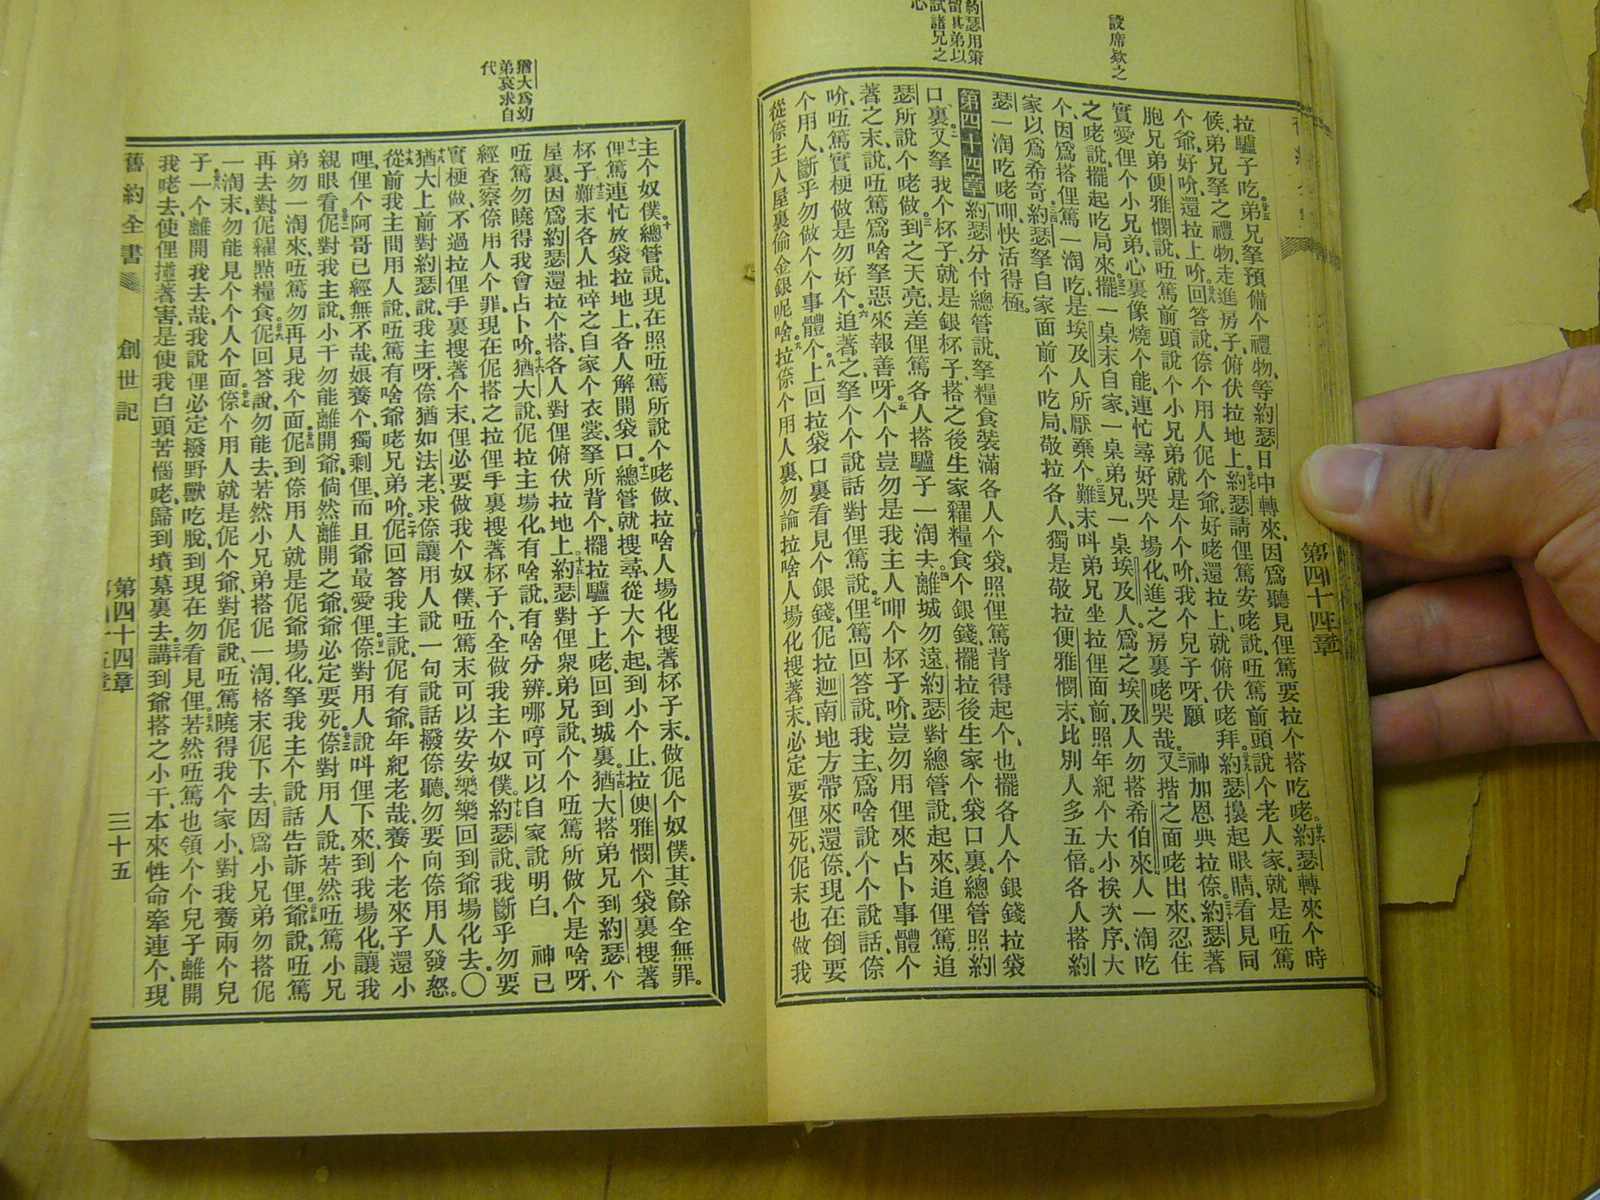 設席欵之
約瑟用策
留其弟以
試諸兄之
心
拉驢子吃、弟兄拏預備个禮物、等約瑟日中轉來、因爲聽見俚篤要拉个搭吃咾、約瑟轉來个時
候、弟兄拏之禮物、走進房子、俯伏拉地上、約瑟請俚篤安咾說、吘篤前頭說个老人家、就是吘篤
个爺、好吤、還拉上吤、回答說、倷个用人伲个爺、好咾還拉上、就俯伏咾拜、約瑟擡起眼睛、看見同
胞兄弟便雅憫說、吘篤前頭說个小兄弟、就是个个吤、我个兒子呀、願 神加恩典拉倷、約瑟著
實愛俚个小兄弟、心裏像燒个能、連忙尋好哭个場化、進之房裏咾哭哉、又揩之面咾出來、忍住
之咾說、擺起吃局來、擺一桌末自家、一桌弟兄、一桌埃及人、爲之埃及人勿搭希伯來人一淘吃
个、因爲搭俚篤一淘吃、是埃及人所厭棄个、難末呌弟兄坐拉俚面前、照年紀个大小挨次序、大
家以爲希奇、約瑟拏自家面前个吃局、敬拉各人、獨是敬拉便雅憫末、比別人多五倍、各人搭約
瑟一淘吃咾呷、快活得極。
第四十四章 約瑟分付總管說、拏糧食裝滿各人个袋、照俚篤背得起个、也擺各人个銀錢拉袋
口裏、又拏我个杯子、就是銀杯子、搭之後生家糴糧食个銀錢、擺拉後生家个袋口裏、總管照約
瑟所說个咾做、到之天亮、差俚篤各人搭驢子一淘去、離城勿遠、約瑟對總管說、起來、追俚篤、追
著之末、說、吘篤爲啥拏惡來報善呀、个个豈勿是我主人呷个杯子吤、豈勿用俚來占卜事體个
吤、吘篤實梗做是勿好个、追著之、拏个个說話對俚篤說、俚篤回答說、我主爲啥說个个說話、倷
个用人、斷乎勿做个个事體个、上回拉袋口裏看見个銀錢、伲拉迦南地方帶來還倷、現在倒要
從倷主人屋裏偷金銀呢啥、拉倷个用人裏、勿論拉啥人場化搜著末、必定要俚死、伲末也做我
第四十四章
猶大爲幼
弟哀求自
代
主个奴僕、總管說、現在照吘篤所說个咾做、拉啥人場化搜著杯子末、做伲个奴僕、其餘全無罪。
俚篤連忙放袋拉地上、各人解開袋口、總管就搜尋、從大个起、到小个止、拉便雅憫个袋裏搜著
杯子、難末各人扯碎之自家个衣裳、拏所背个、擺拉驢子上咾、回到城裏、猶大搭弟兄到約瑟个
屋裏、因爲約瑟還拉个搭、各人對俚俯伏拉地上、約瑟對俚衆弟兄說、个个吘篤所做个是啥呀、
吘篤勿曉得我會占卜吤、猶大說、伲拉主場化、有啥說、有啥分辨、哪哼可以自家說明白、 神已
經查察倷用人个罪、現在伲搭之拉俚手裏搜著杯子个、全做我主个奴僕、約瑟說、我斷乎勿要
實梗做、不過拉俚手裏搜著个末、俚必要做我个奴僕、吘篤末可以安安樂樂回到爺場化去。〇
猶大上前對約瑟說、我主呀、倷猶如法老、求倷讓用人說一句說話撥倷聽、勿要向倷用人發怒。
從前我主問用人說、吘篤有啥爺咾兄弟吤、伲回答我主說、伲有爺、年紀老哉、養个老來子還小
哩、俚个阿哥已經無不哉、娘養个、獨剩俚、而且爺最愛俚、倷對用人說、呌俚下來、到我場化、讓我
親眼看、伲對我主說、小干勿能離開爺、倘然離開之爺、爺必定要死、倷對用人說、若然吘篤小兄
弟勿一淘來、吘篤勿再見我个面、伲到倷用人就是伲爺場化、拏我主个說話告訴俚、爺說、吘篤
再去對伲糴點糧食、伲回答說、勿能去、若然小兄弟搭伲一淘格末伲下去、因爲小兄弟勿搭伲
一淘末、勿能見个个人个面、倷个用人就是伲个爺、對伲說、吘篤曉得我个家小、對我養兩个兒
子、一个離開我去哉、我說俚必定撥野獸吃脫、到現在勿看見俚、若然吘篤也領个个兒子離開
我咾去、使俚撞著害、是使我白頭苦惱咾、歸到墳墓裏去、講到爺搭之小干、本來性命牽連个、現
舊約全書 創世記 第四十四章 三十五